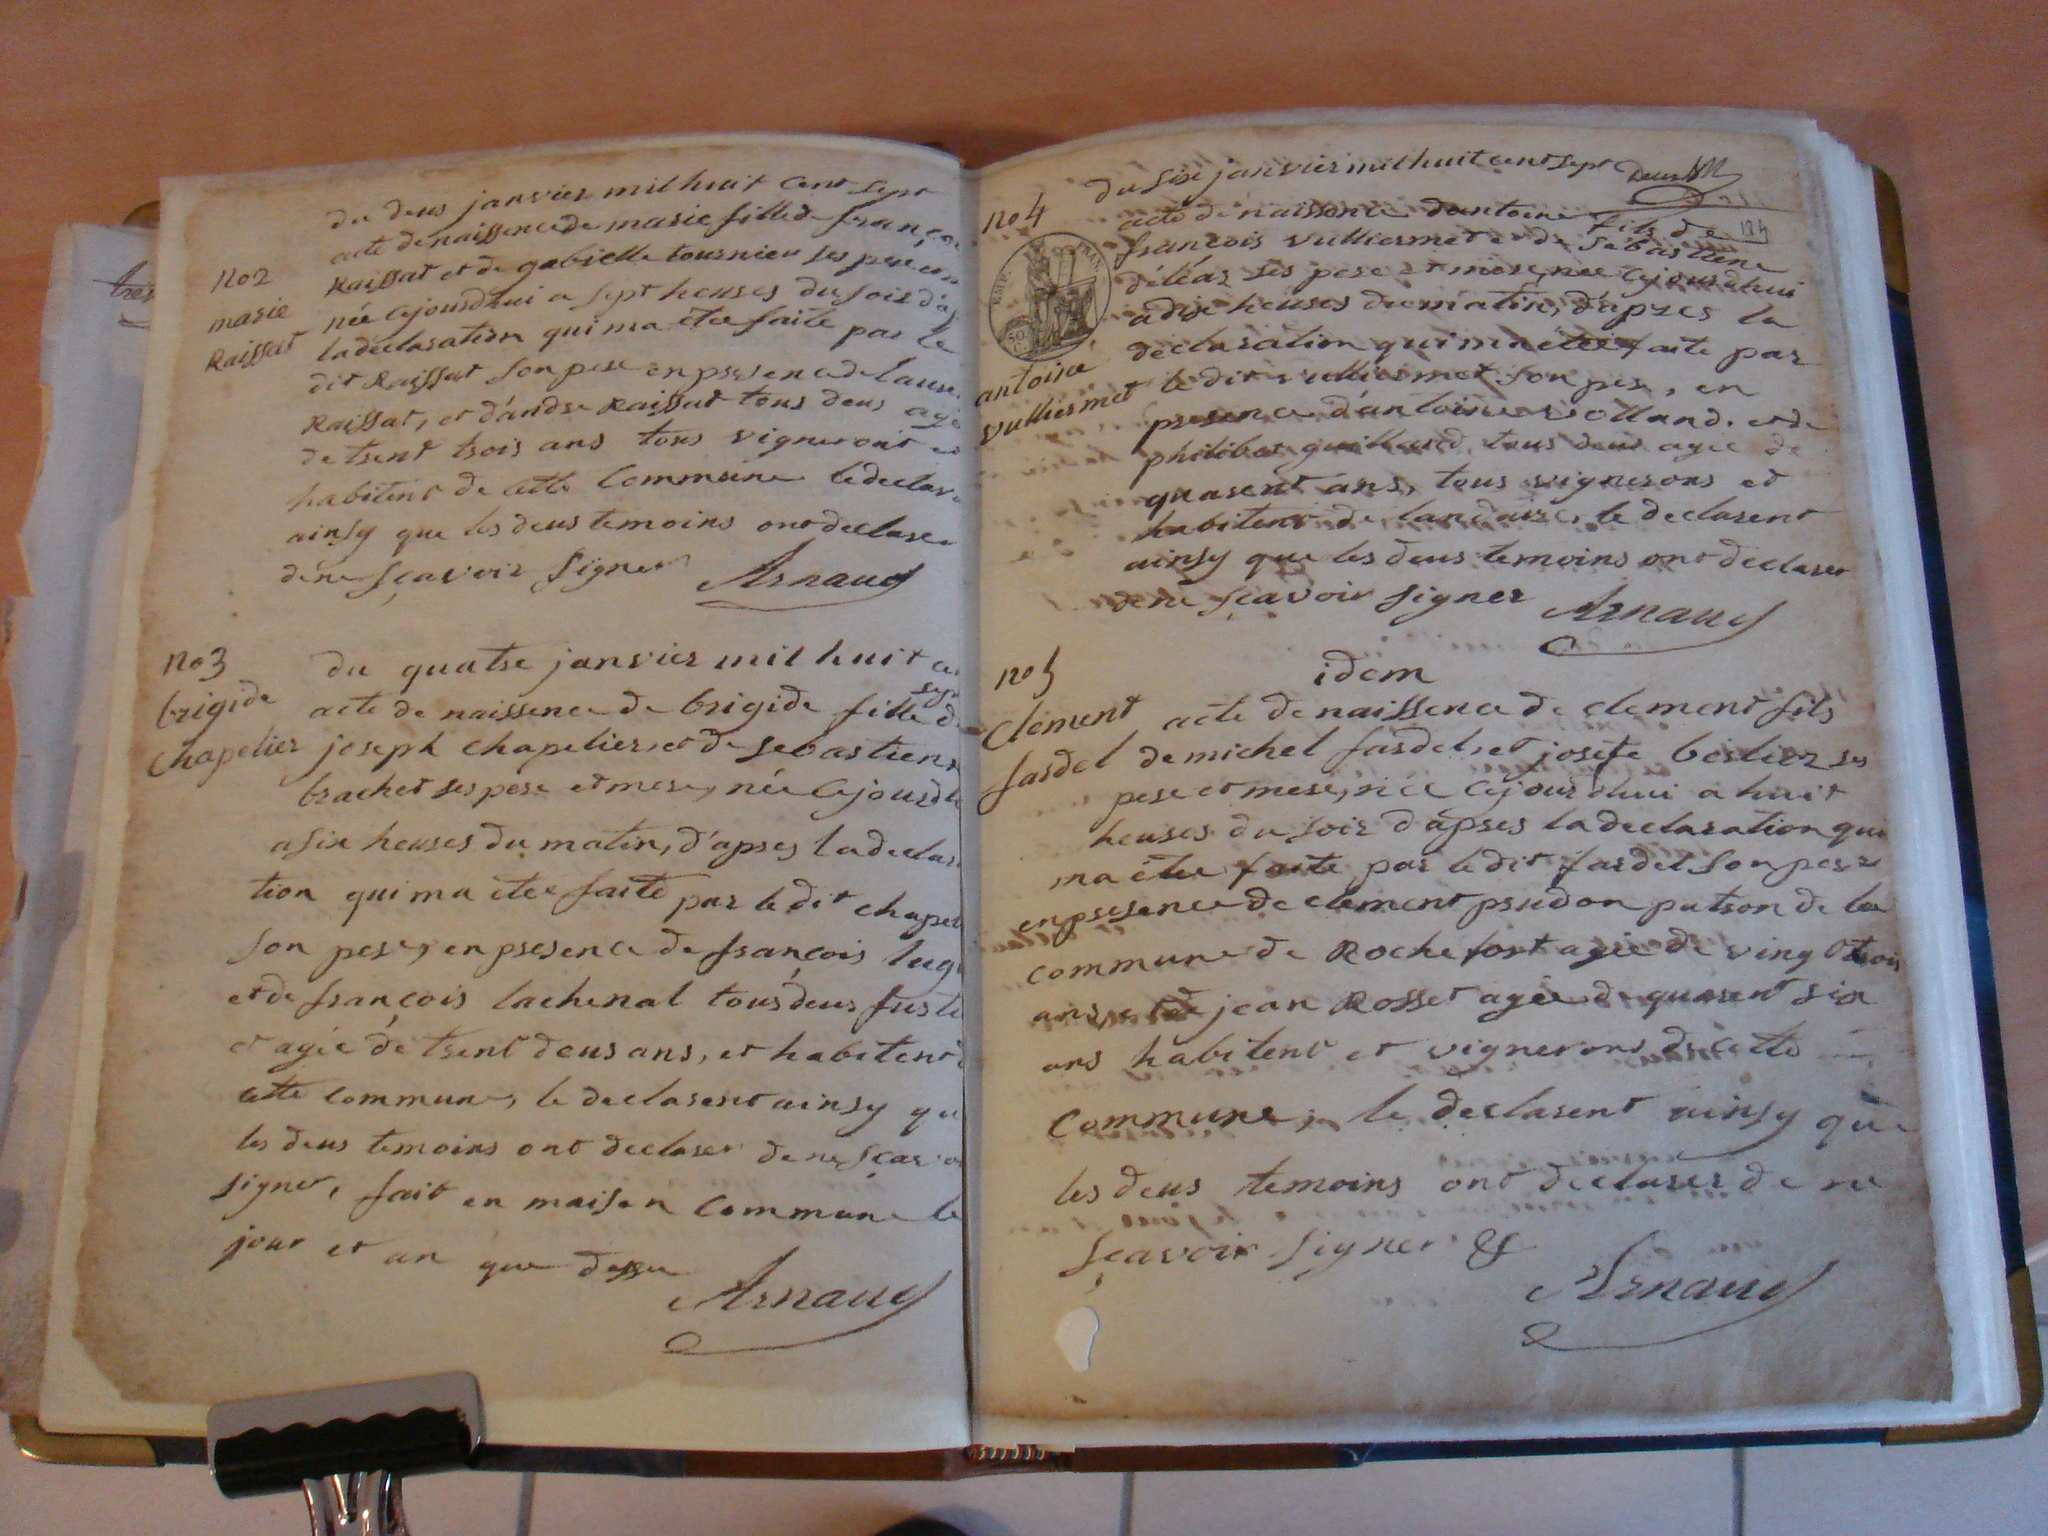 du deus janvier mil huit cent sept
acte de naissence de marie fille de françoi
no2
marie
Raissat
Raissat et de gabielle tournieu ses pere et m
née cejourdhui a sept heures du soir d'a
la declaration qui ma étée faite par le
dit Raissat son pere en presence de laure
Raissat, et d'andre Raissat tous deus agé
de trent trois ans tous vigneront et
habitent de cette Commune le declar
ainsy que les deus temoins ont declarer
de ne sçavoir signer Arnaud
no3
brigide
chapelier
du quatre janvier mil huit ce
sept
acte de naissence de brigide fille de
joseph chapelier, et de sebastienne
brachet ses pere et mere, née cejourdh
a six heures du matin, d'apres la declar
tion qui ma étée faite par le dit chapel
son pere, en presence de françois lug
et de françois lachenal tous deus
et agée de trent deus ans, et habitent d
cette commune, le declarent ainsy qu
les deus temoins ont declarer de ne sçavoi
signer, fait en maison commune le
jour et an que dessu
Arnaud
du six janvier mil huit cent sept
124
no4
acte de naissence d'antoine fils de
françois vulliermet et de Sebastiene
déléaz ses pere et mere, née cejourdhui
a dix heures du matin, d'apres la
declaration qui ma étée faite par
EMP. FRAN.
50
C.
antoine
vulliermet
le dit vulliermet son pere, en
presence d'antoine volland. et de
philibert guilland tous deus agée de
quarent ans, tous vignerons et
habitent de landaize, le declarent
ainsy que les deus temoins ont declarer
de ne sçavoir signer Arnaud
no5
idem
clement
fardel
acte de naissence de clement fils
de michel fardel, et josefe berlioz ses
pere et mere, née cejourdhui a huit
heures du soir d'apres la declaration qui
ma étée faite par le dit fardel son pere
en presence de clement prudon patron de la
commune de Rochefort agée de vingt trois
ans, et de jean Rosset agée de quarent six
ans habitent et vignerons de cette
commune, le declarent ainsy que
les deus temoins ont declarer de ne
sçavoir signer &
Arnaud